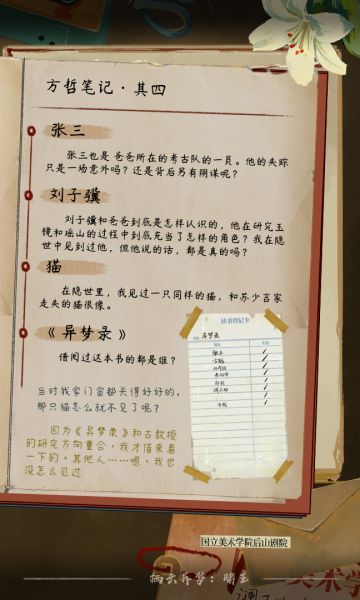 方哲笔记·其四
张三
张三也是爸爸所在的考古队的一员。他的失踪
只是一场意外吗？还是背后另有阴谋呢？
刘子骥
刘子骥和爸爸到底是怎样认识的，他在研究玉
镜和瑶山的过程中到底充当了怎样的角色？我在隐
世中见到过他，但他说的话，都是真的吗？
猫
在隐世里，我见过一只同样的猫，和苏少言家
走失的猫很像。
《异梦录》
借阅过这本书的都是谁？
读书登记卡
异梦录
张三
当时我家门窗都关得好好的，
那只猫怎么就不见了呢？
因为《异梦录》和古教授
的研究方向重合，我才借来看
一下的。其他人……嗯，我也
没怎么见过
国立美术学院后山剧院